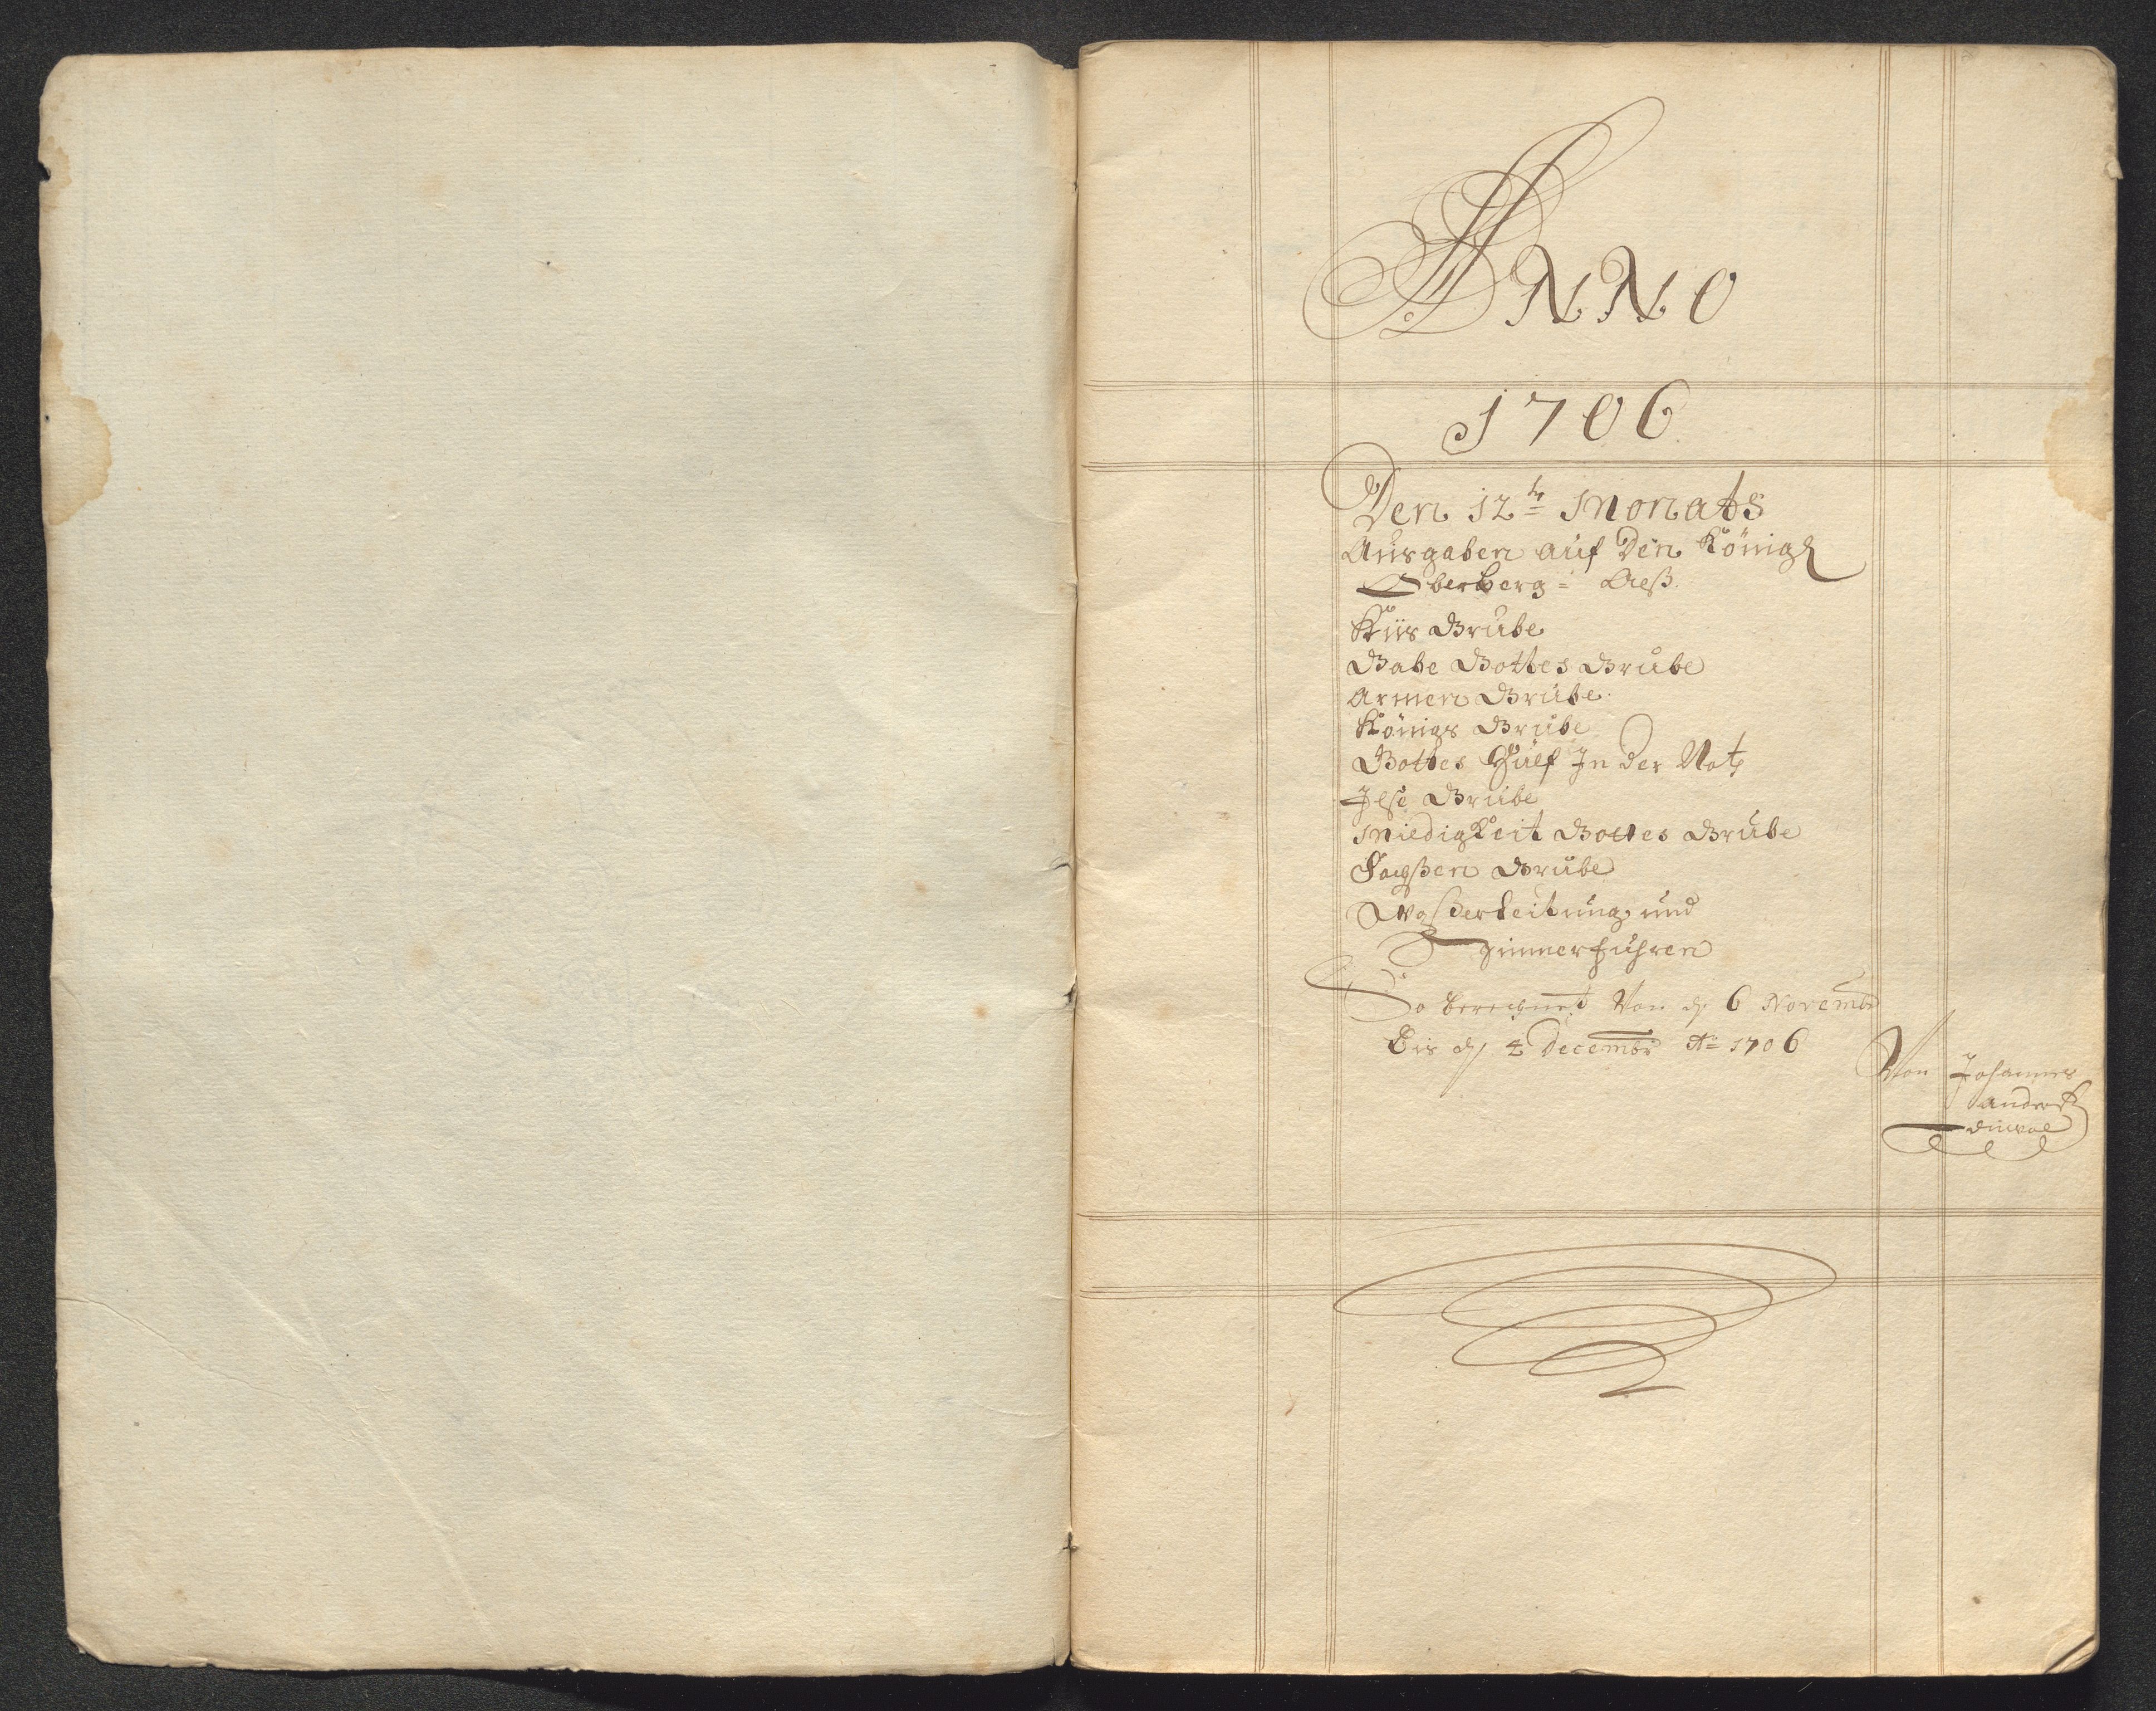 ANNO
1706
Den 12te Monats
Ausgaben auf Den Königl
Oberberg=
Gabe Gottes Grube
Armen Grube
Königs Grube
Gottes Hülf In Der Not
Grube
Mildigkeit Gottes Grube
Sachßen Grube
Waßerleitung und
Zimmerfuhren
So berechnet Von d 6 Novembr
bis d 4 Decembr Ao 1706
Von Johannes
Andreas